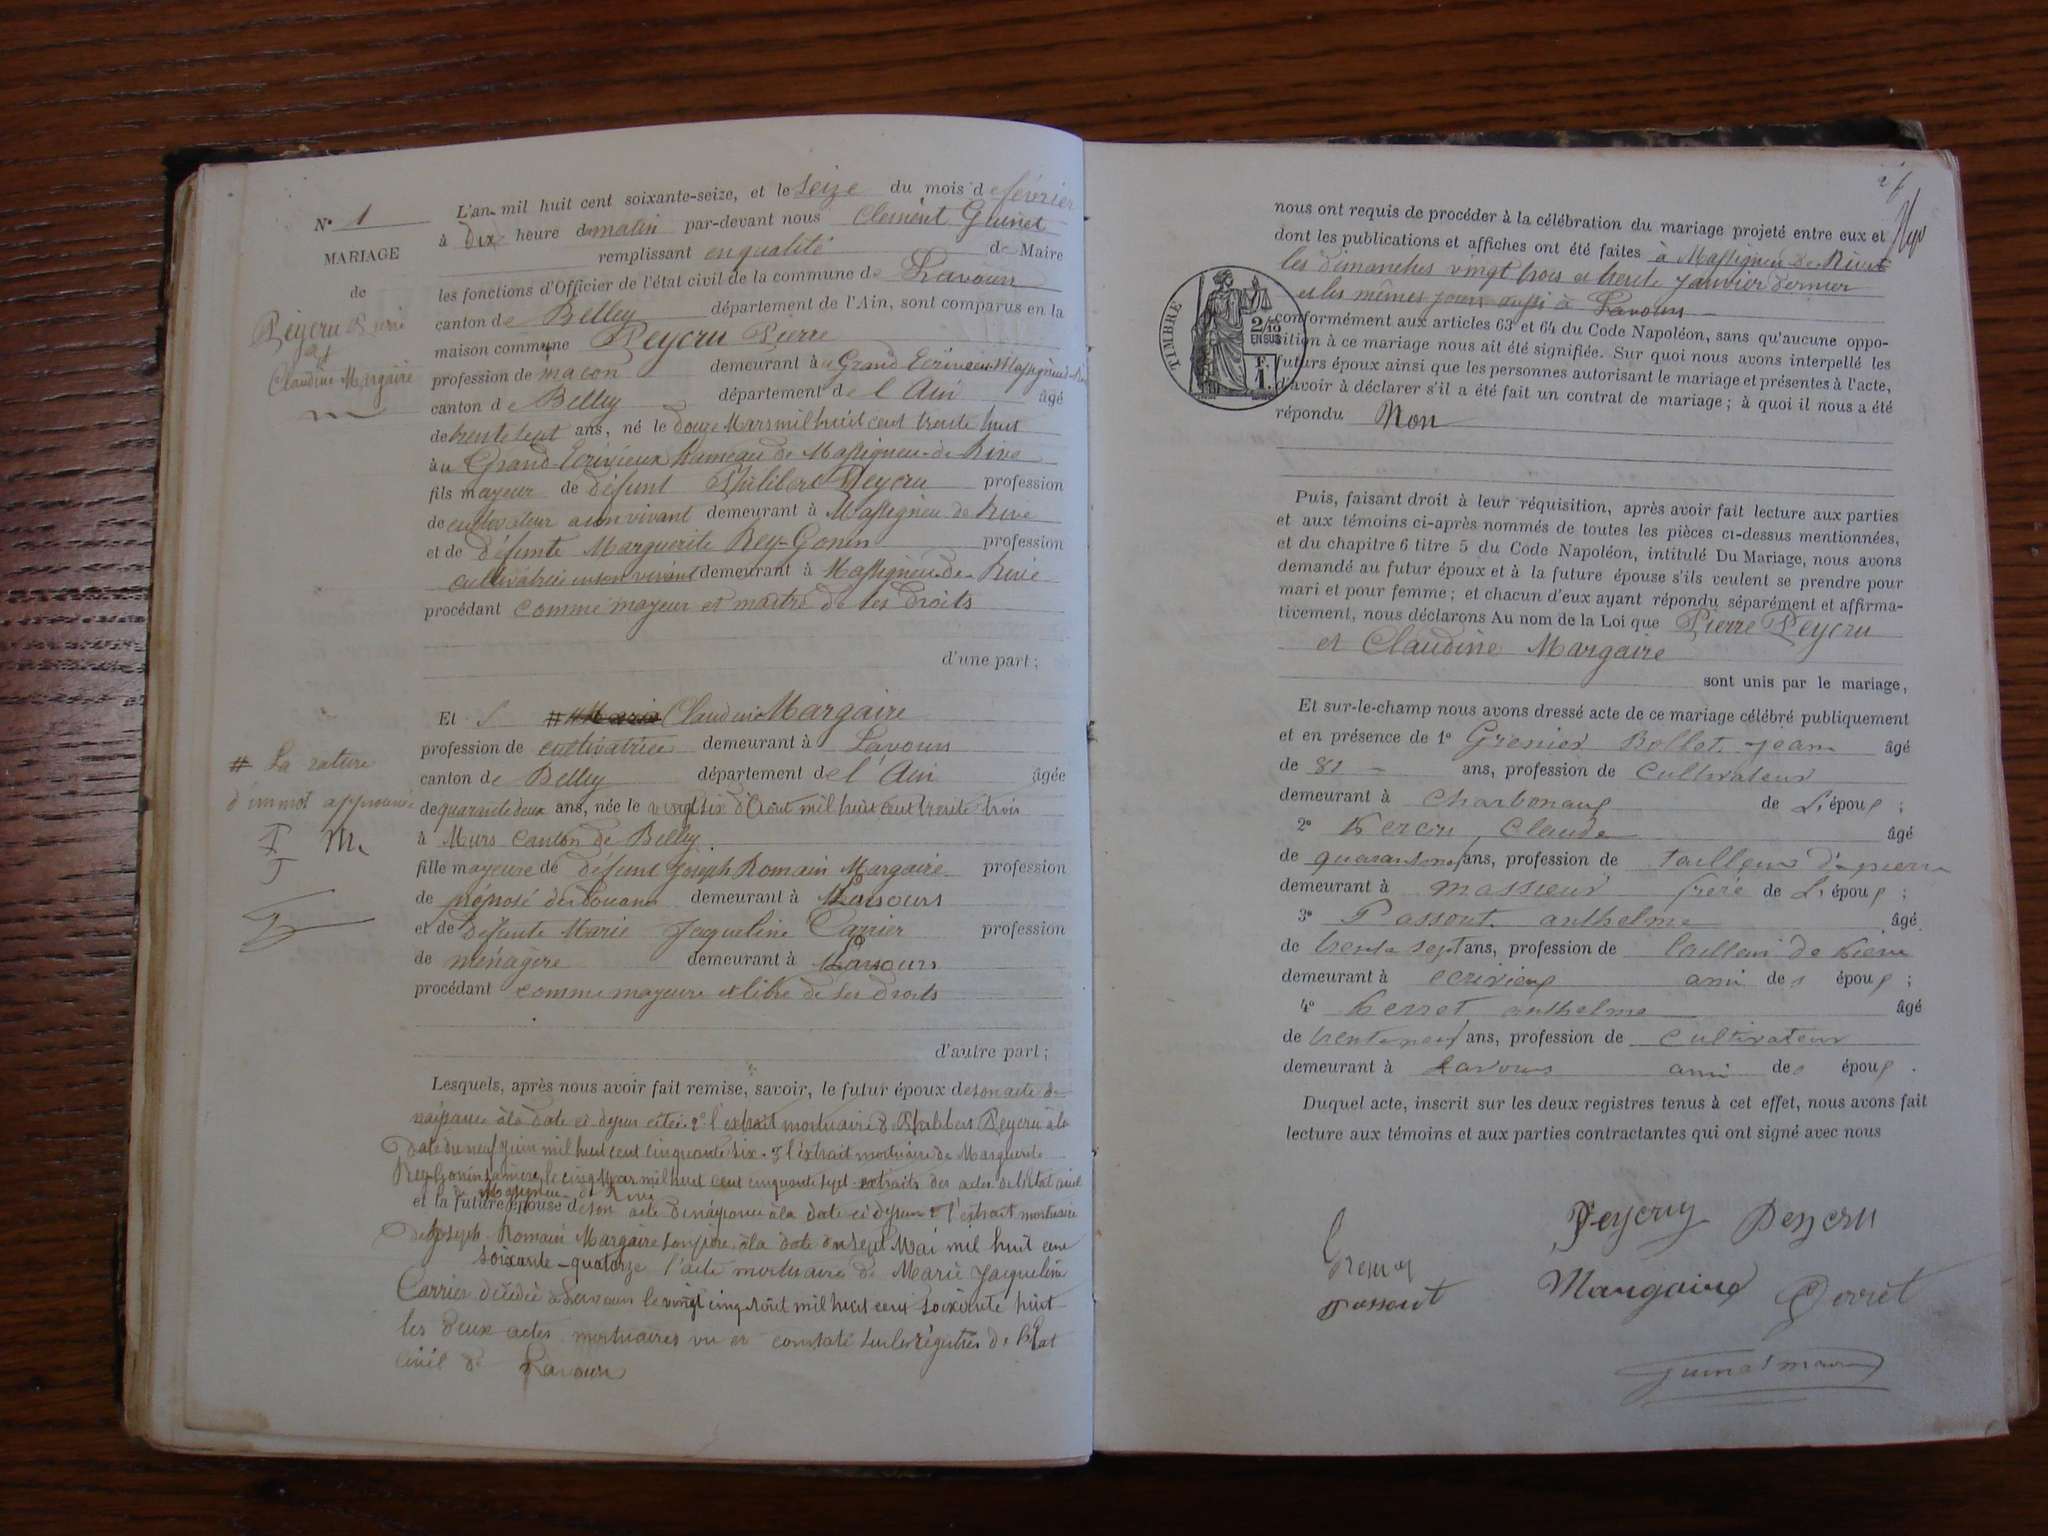 N° 1
MARIAGE
de
Peycru Pierre
et
Claudine Margaire
L'an mil huit cent soixante-seize, et le seize du mois de février
à dix heure du matin par-devant nous Clément Guinet
remplissant en qualité de Maire
les fonctions d'Officier de l'état civil de la commune de Lavours
canton de Belley département de l'Ain, sont comparus en la
maison commune Peycru Pierre
profession de maçon demeurant au Grand Ecrivieu Massigneu-de-Rive
canton de Belley département de l'Ain âgé
de trente sept ans, né le douze Mars mil huit cent trente huit
au Grand-Ecrivieux hameau de Massigneu-de-Rive
fils mayeur de défunt Philibert Peycru profession
de cultivateur à son vivant demeurant à Massigneu de Rive
et de défunte Marguerite Rey-Gonin profession
cultivatrice en son vivant demeurant à Massigneu-de-Rive
procédant comme mayeur et maître de ses droits
d'une part;
Et # Marie Claudine Margaire
profession de cultivatrice demeurant à Lavours
canton de Belley département de l'Ain âgée
de quarante deux ans, née le vingt six d'Août mil huit cent trente trois
à Murs canton de Belley.
fille mayeure de défunt Joseph Romain Margaire profession
de préposé des Douanes demeurant à Lavours
et de défunte Marie Jacqueline Carrier profession
de ménagère demeurant à Lavours
procédant comme mayeure et libre de ses droits
d'autre part;
# La rature
d'un mot approuvée
Lesquels, après nous avoir fait remise, savoir, le futur époux de son acte de
naissance à la date ci dessus citée 2° l'extrait mortuaire de Philibert Peycru à la
date du neuf Juin mil huit cent cinquante six. 3 l'extrait mortuaire de Marguerite
Rey-Gonin sa mère, le cinq Mars mil huit cent cinquante sept extraits des actes de l'état civil
de Massigneu de Rive
et la future épouse de son acte de naissance à la date ci dessus 2° l'extrait mortuaire
de Joseph Romain Margaire son père à la date du sept Mai mil huit cent
soixante-quatorze l'acte mortuaire de Marie Jacqueline
Carrier décédée à Lavours le vingt cinq Août mil huit cent soixante huit
les deux actes mortuaires vu et constaté sur les régistres de l'état
civil de Lavours
nous ont requis de procéder à la célébration du mariage projeté entre eux et
dont les publications et affiches ont été faites à Massigneu de Rive
les dimanches vingt trois et trente Janvier dernier
et les mêmes jours aussi à Lavours
TIMBRE
2/10
EN SUS
F.
1.
conformément aux articles 63 et 64 du Code Napoléon, sans qu'aucune oppo-
sition à ce mariage nous ait été signifiée. Sur quoi nous avons interpellé les
futurs époux ainsi que les personnes autorisant le mariage et présentes à l'acte,
d'avoir à déclarer s'il a été fait un contrat de mariage; à quoi il nous a été
répondu Non
Puis, faisant droit à leur réquisition, après avoir fait lecture aux parties
et aux témoins ci-après nommés de toutes les pièces ci-dessus mentionnées,
et du chapitre 6 titre 5 du Code Napoléon, intitulé Du Mariage, nous avons
demandé au futur époux et à la future épouse s'ils veulent se prendre pour
mari et pour femme; et chacun d'eux ayant répondu séparément et affirma-
tivement, nous déclarons Au nom de la Loi que Pierre Peycru
et Claudine Margaire
sont unis par le mariage,
Et sur-le-champ nous avons dressé acte de ce mariage célébré publiquement
et en présence de 1° Grenier Bollet Jean âgé
de 81 ans, profession de cultivateur
demeurant à Charbonaux de L'époux;
2° Percru Claude âgé
de quarante neuf ans, profession de tailleur de pierre
demeurant à massieux frère de L'époux;
3° Passout anthelme âgé
de trente sept ans, profession de tailleur de Pierre
demeurant à ecrivieux ami des époux;
4° Perret anthelme âgé
de trente neuf ans, profession de cultivateur
demeurant à Lavours ami des époux.
Duquel acte, inscrit sur les deux registres tenus à cet effet, nous avons fait
lecture aux témoins et aux parties contractantes qui ont signé avec nous
Peycru Peycru
Grenier
Passout Margaire Perret
Guinet maire